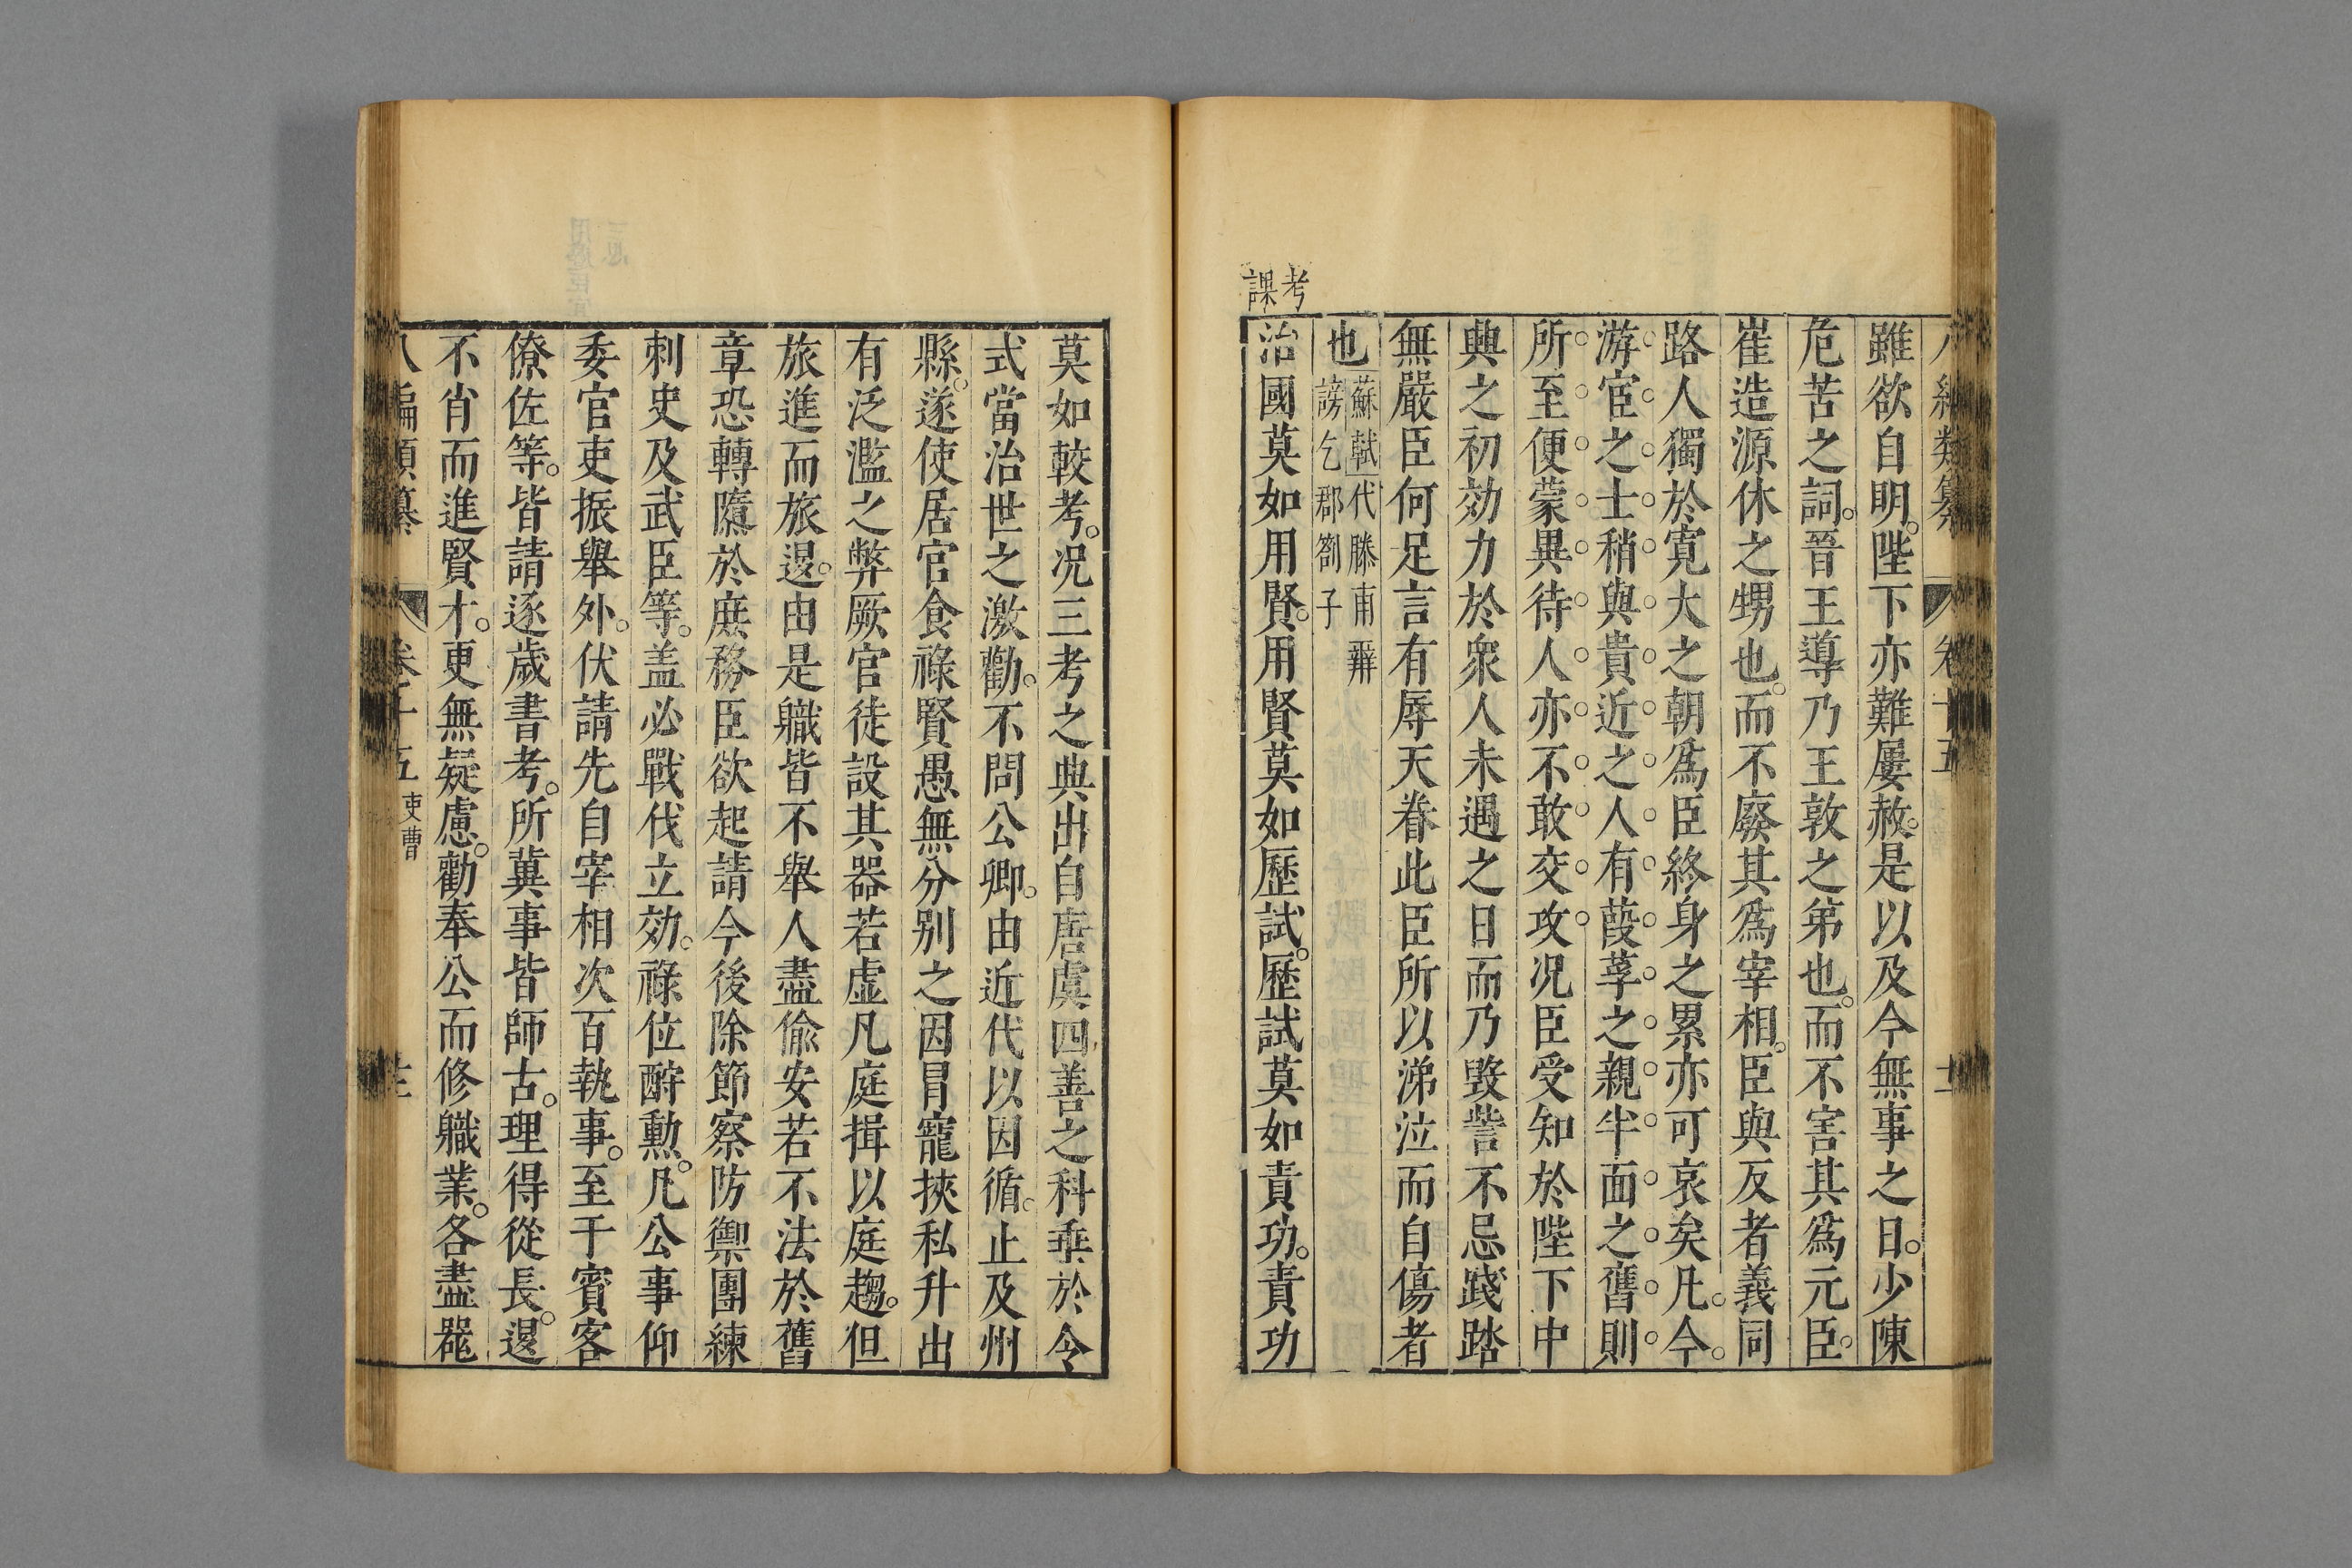 雖欲自明。陛下亦難屢赦。是以及今無事之日。少陳
危苦之詞。晉王導乃王敦之弟也。而不害其爲元臣。
崔造源休之甥也。而不廢其爲宰相。臣與反者義同
路人獨於寬大之朝爲臣終身之累亦可哀矣凡今
游宦之士稍與貴近之人有葭莩之親半面之舊則
所至便蒙異待人亦不敢交攻况臣受知於陛下中
興之初効力於衆人未遇之日而乃毀訾不忌踐踏
無嚴臣何足言有辱天眷此臣所以涕泣而自傷者
也
蘇軾代滕甫辨
謗乞郡劄子
考課
治國莫如用賢。用賢莫如歷試。歷試莫如責功。責功
莫如較考。况三考之典出自唐虞四善之科垂於令
式當治世之激勸。不問公卿。由近代以因循。止及州
縣。遂使居官食祿賢愚無分别之因冒寵挾私升出
有泛濫之弊厥官徒設其器若虚凡庭揖以庭趨。但
旅進而旅退。由是職皆不舉人盡偷安若不法於舊
章恐轉隳於庶務臣欲起請今後除節察防禦團練
刺史及武臣等。盖必戰伐立効。祿位酧勳。凡公事仰
委官吏振舉外。伏請先自宰相次百執事。至于賓客
僚佐等。皆請逐歲書考。所冀事皆師古。理得從長。退
不肖而進賢才。更無疑慮。勸奉公而修職業。各盡器
八編類纂 卷十五 吏曹